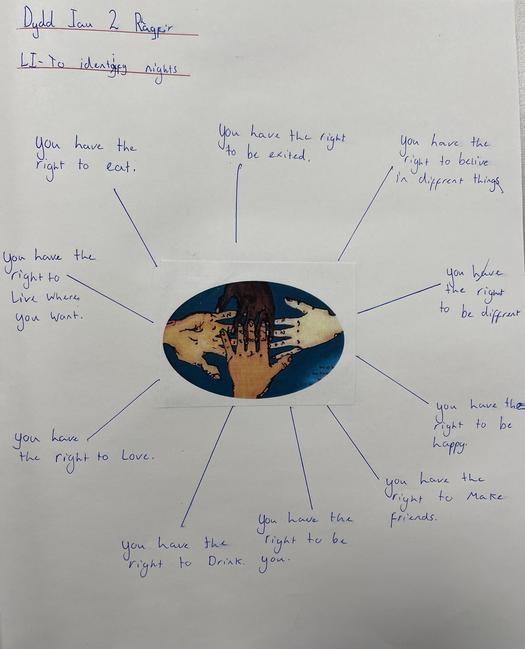 Dydd Iau 2 Ragfir
LI- To identify rights
you have the
right to eat.
you have the right
to be exited.
you have the
right to belive
in different things,
you have the
right to
Live where
you want.
you have
the right
to be different
you have the
right to be
happy.
you have
the right to Love.
you have the
right to Make
friends.
you have the
right to Drink.
you have the
right to be
you.